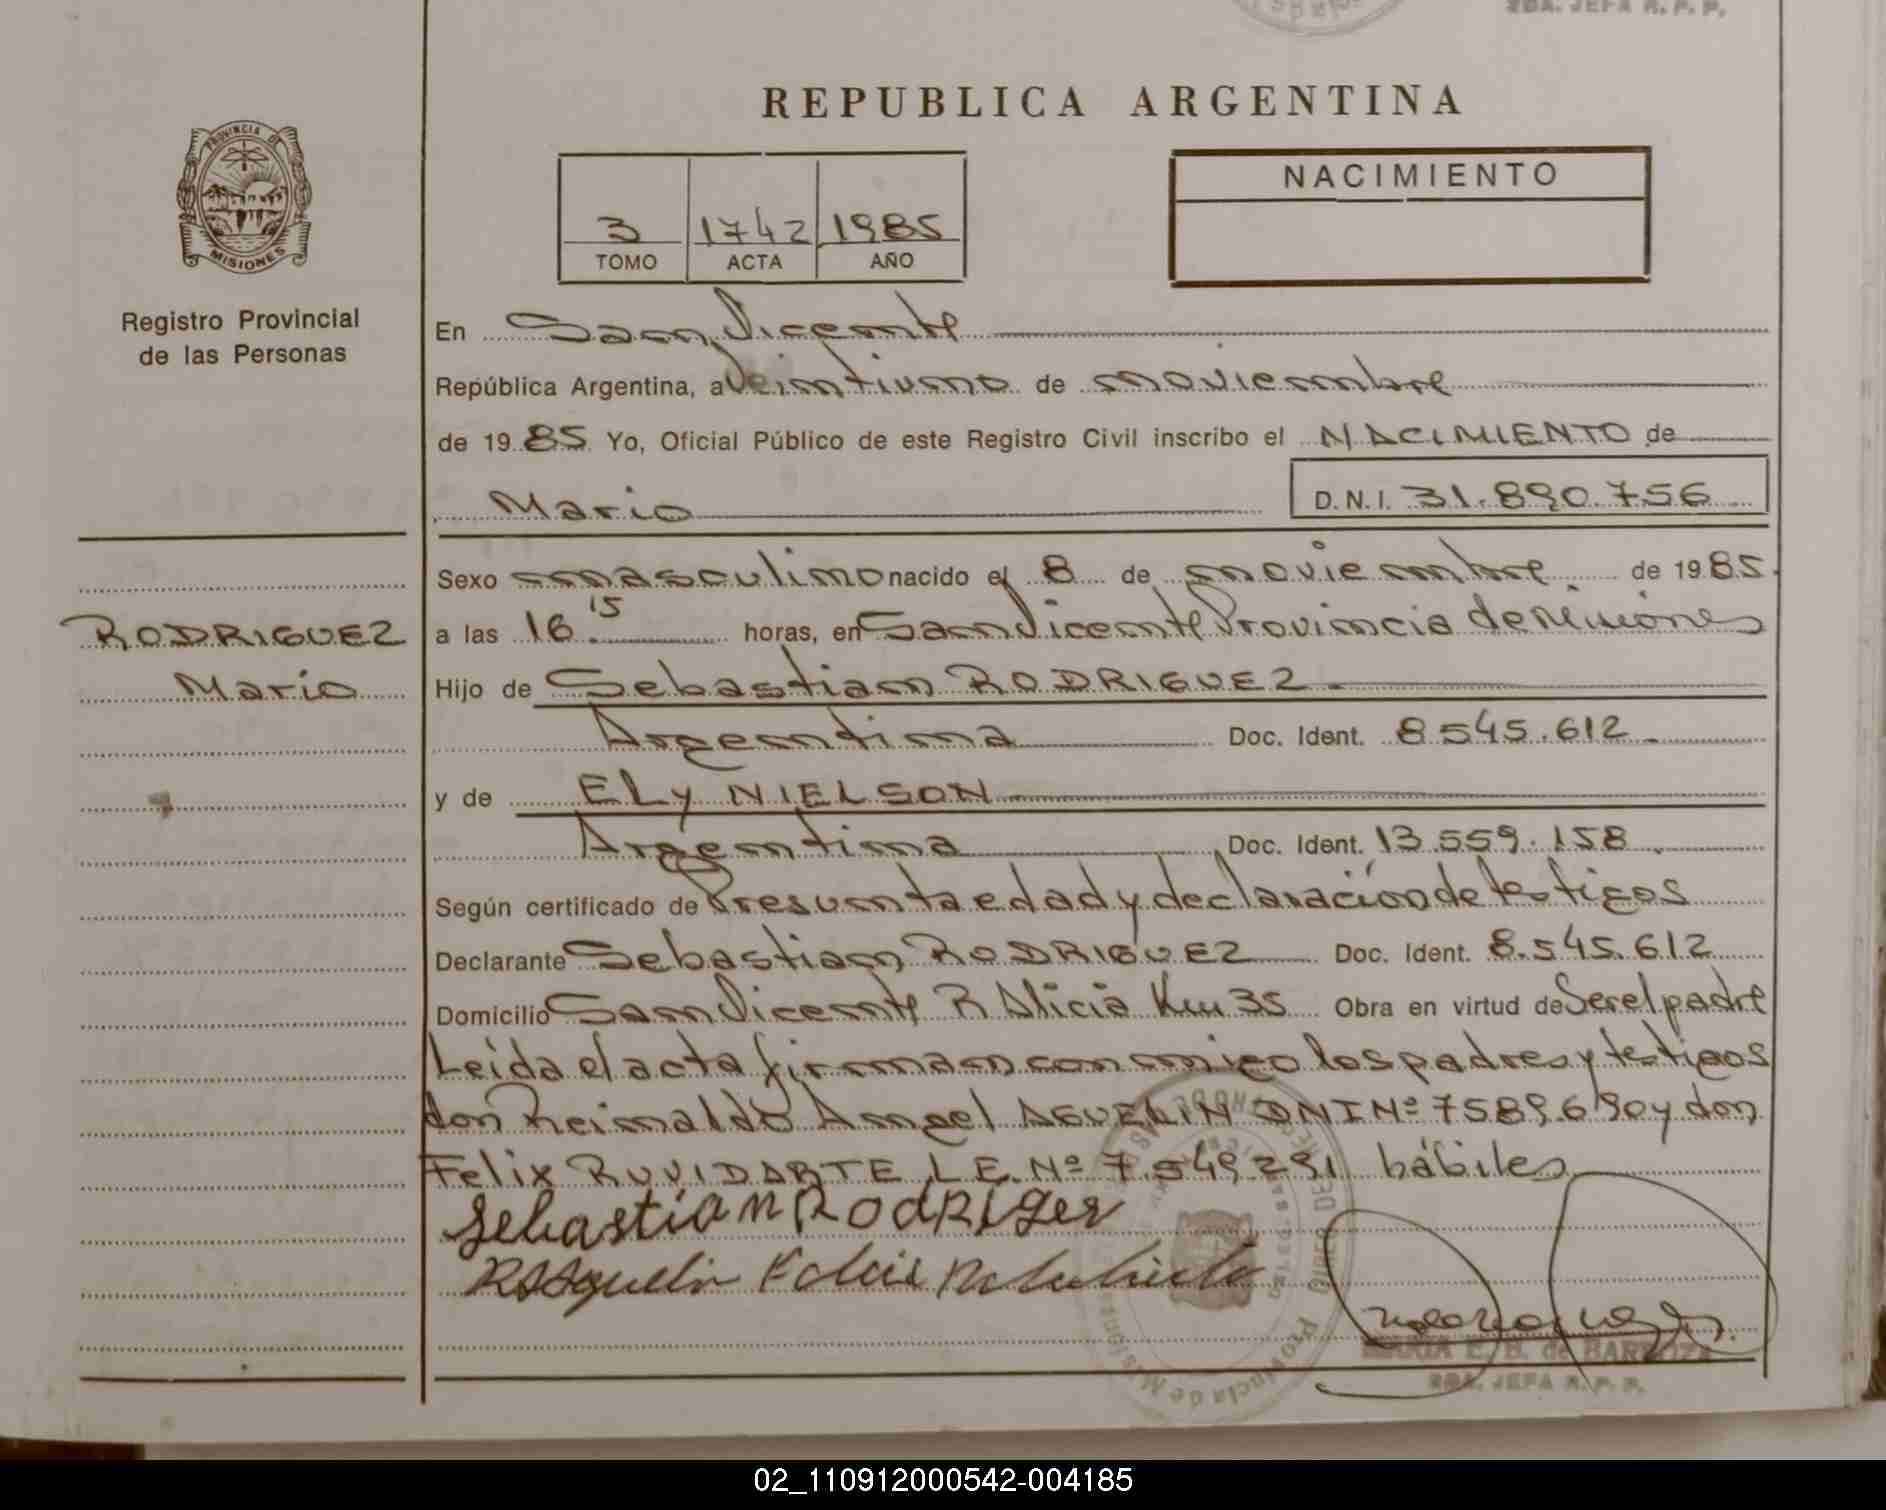 2DA. JEFA R. P. P.
REPUBLICA ARGENTINA
PROVINCIA DE
MISIONES
Registro Provincial
de las Personas
3 1742 1985
TOMO ACTA AÑO
NACIMIENTO
En San Vicente
República Argentina, a Veintiuno de noviembre
de 1985 Yo, Oficial Público de este Registro Civil inscribo el NACIMIENTO de
Mario D.N.I. 31.890.756
Sexo masculino nacido el 8 de noviembre de 1985.
RODRIGUEZ
Mario
a las 16.15 horas, en San Vicente Provincia de Misiones
Hijo de Sebastian RODRIGUEZ.
Argentina Doc. Ident. 8545.612.
y de ELy NIELSON
Argentina Doc. Ident. 13.559.158.
Según certificado de Presunta edad y declaración de testigos
Declarante Sebastian RODRIGUEZ Doc. Ident. 8.545.612
Domicilio San Vicente P. Alicia Km 35 Obra en virtud de Ser el padre
Leída el acta firman conmigo los padres y testigos
don Reinaldo Angel AGUELIN DNI Nº 7589.690 y don
Felix RUVIDARTE L.E. Nº 7.549.291 hábiles
Sebastian RodRiger
MARIA E. B. de BARBOZA
2DA. JEFA R. P. P.
Provincia de Misiones
02_110912000542-004185